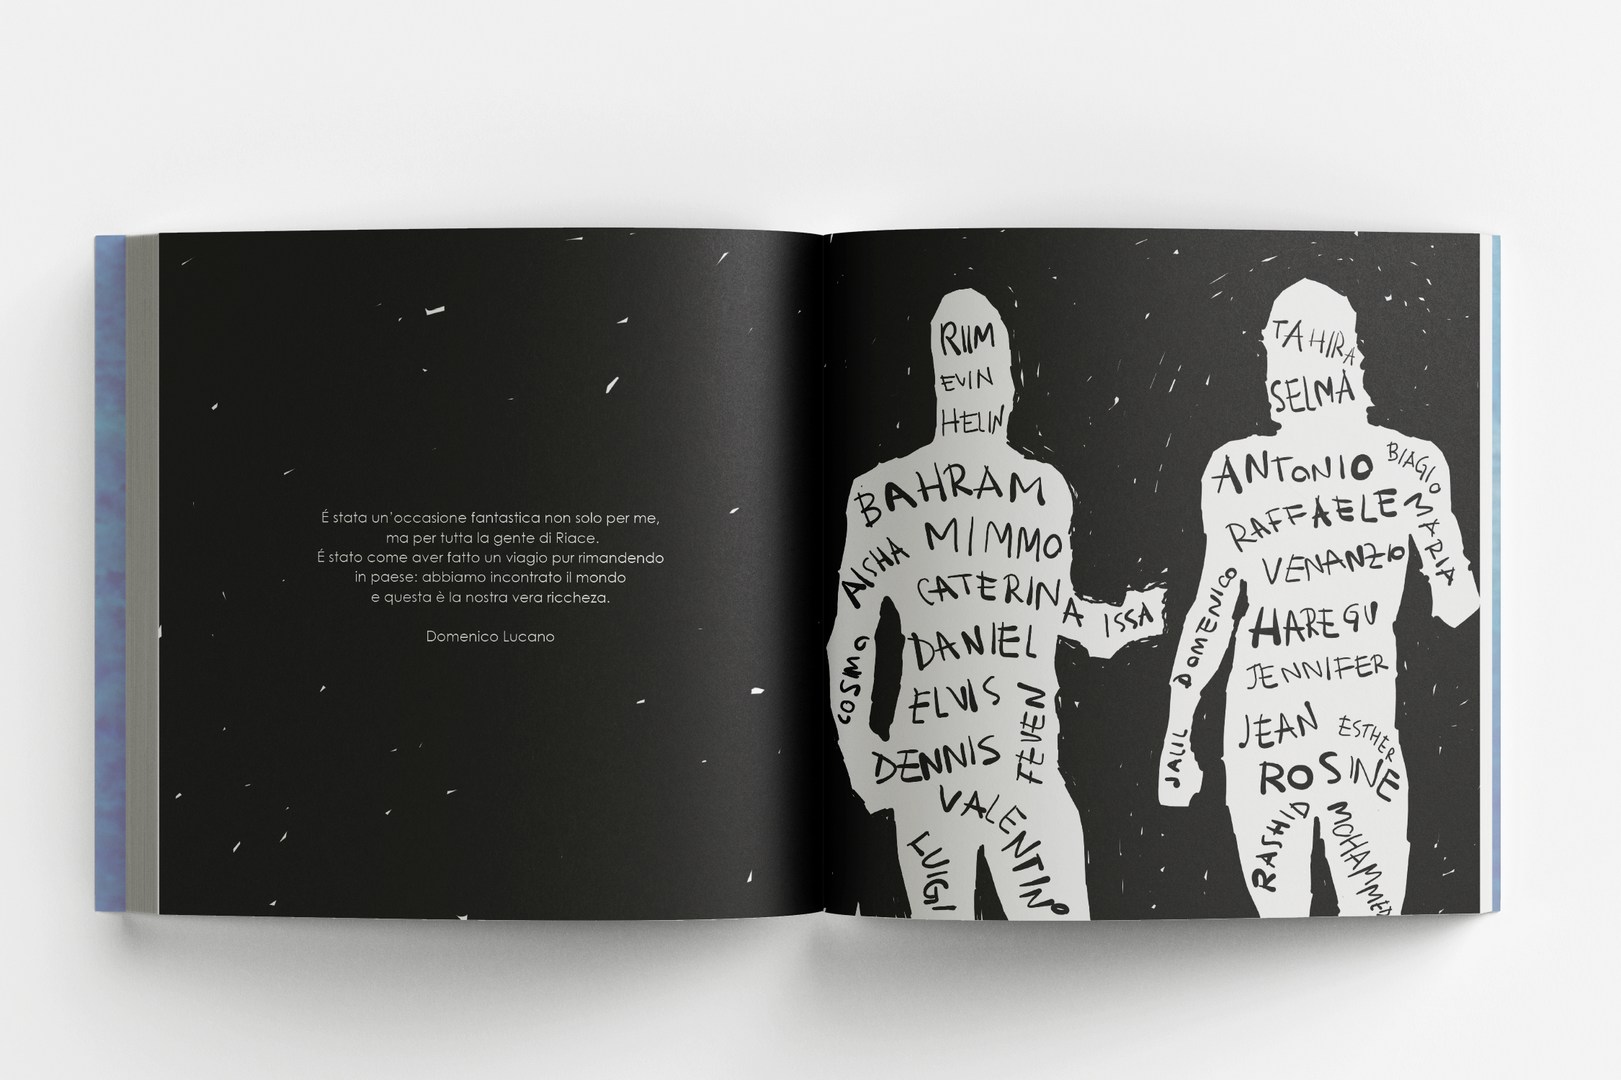 É stata un'occasione fantastica non solo per me,
ma per tutta la gente di Riace.
É stato come aver fatto un viagio pur rimandendo
in paese: abbiamo incontrato il mondo
e questa è la nostra vera riccheza.
Domenico Lucano
RIIM
EVIN
HELIN
BAHRAM
MIMMO
AISHA
CATERINA
ISSA
DANIEL
COSMO
ELVIS
FEVEN
DENNIS
VALENTINO
LUIGI
TAHIRA
SELMA
ANTONIO
BIAGIO
RAFFAELE
MARIA
VENANZIO
DOMENICO
HAREGU
JENNIFER
JEAN
ESTHER
JALIL
ROSINE
RASHID
MOHAMMED